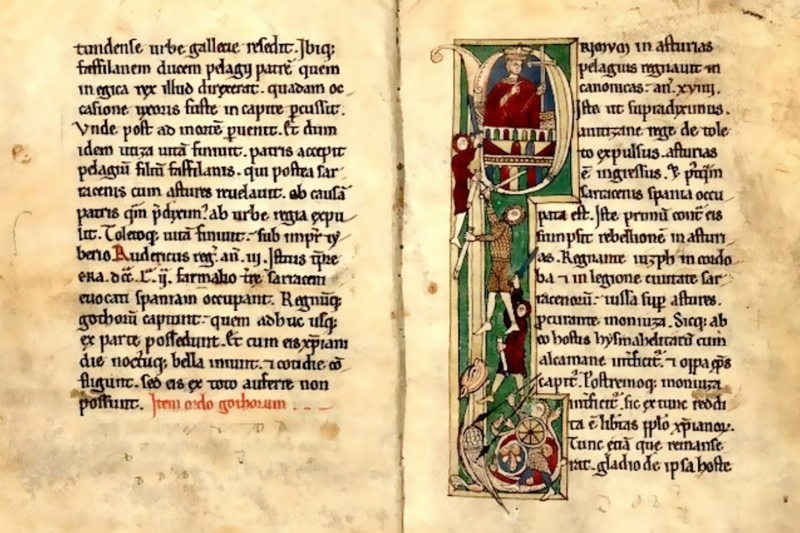 tundense urbe gallecie resedit. Ibiq;
faffilanem ducem pelagij patrē quem
in egica rex illud direxerat. quadam oc
casione uxoris fuste in capite ꝑcussit.
Vnde post ad mortē ꝑuenit. Et dum
idem utiza uitā finiuit. patris accepit
pelagiū filiū faffilanis. qui postea sar
racenis cum astures reuelauit. ob causā
patris q̄m p̄dixim; ab urbe regia expu
lit. Toletoq; uitā finiuit. sub imp̄r ty
berio Rudericus reg. an. iii. Istius tp̄re
era. dcc. L. ij. farmalio tr̄e sarraceni
euocati spaniam occupant. Regnūq;
gothorū capiunt. quem adhuc usq;
ex parte possedunt. Et cum eis xp̄iani
die noctuq; bella iniunt. ⁊ cotidie cō
fligunt. sed eis ex toto auferre non
possunt. Item ordo gothorum
PRIMUM in asturias
pelagius regnauit in
canonicas. an. xviiii.
Iste ut supradiximus.
auitizane rege de tole
to expulsus. asturias
ē ingressus. & p̄tq̄m
sarracenis spania occu
pata est. Iste primū cont̄ eis
sumpsit rebellionē in asturi
as. Regnante iuzph in cordo
ba ⁊ in legione ciuitate sar
racenorū. iussa sup̄ astures.
ꝑcurante moniuza. Sicq; ab
eo hostis hysmahelitarū cum
alcamane int̄ficit̄. ⁊ oppa ep̄s
capit̄. Postremoq; moniuza
int̄ficit̄. sic ex tunc reddi
ta ē lib̄tas pp̄lo xp̄ianor.
Tunc etiā que remanse
rat. gladio de ipsa hoste